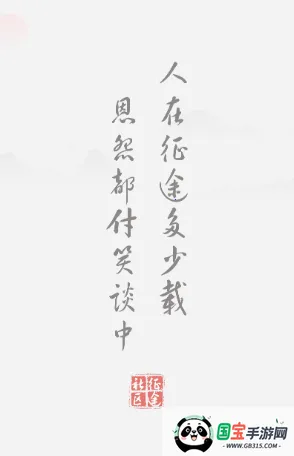 人在征途多少载
恩怨都付笑谈中
征途
社区
国宝手游网
WWW.GB315.COM